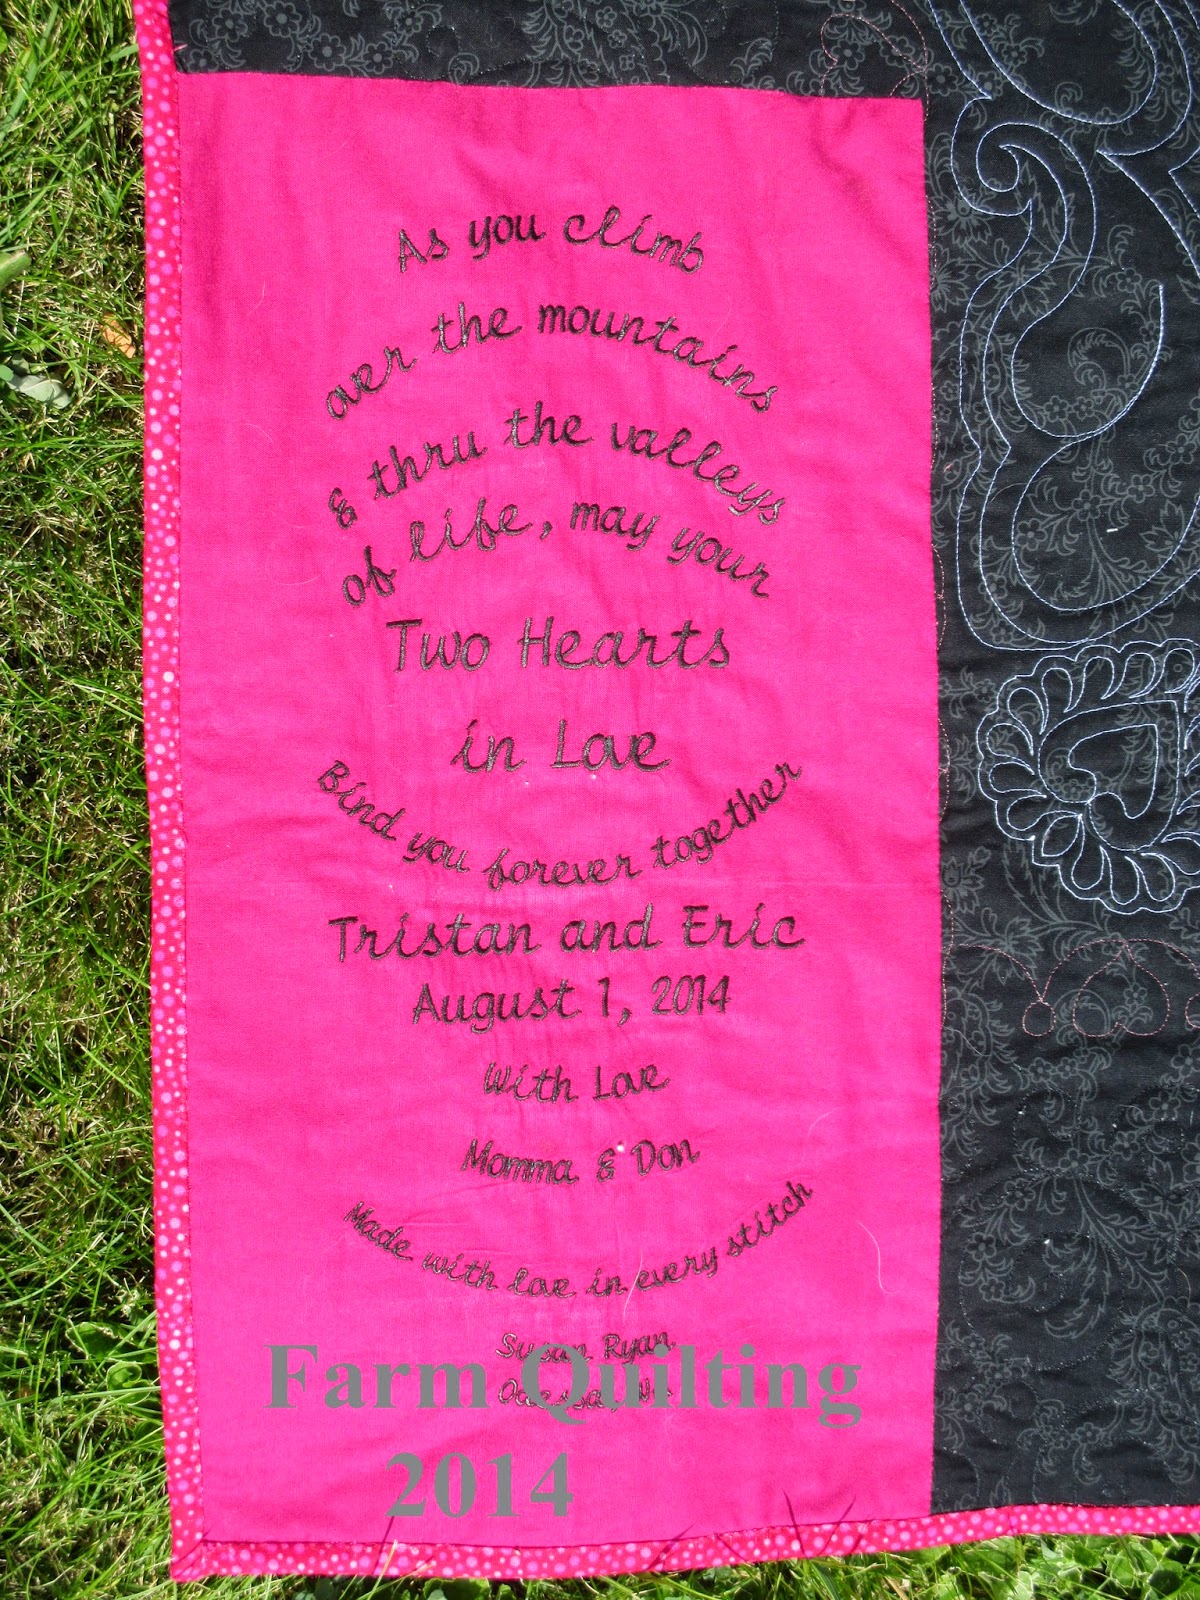 As you climb
over the mountains
& thru the valleys
of life, may your
Two Hearts
in Love
Bind you forever together
Tristan and Eric
August 1, 2014
With Love
Momma & Don
Made with love in every stitch
Susan Ryan
Farm Quilting
2014